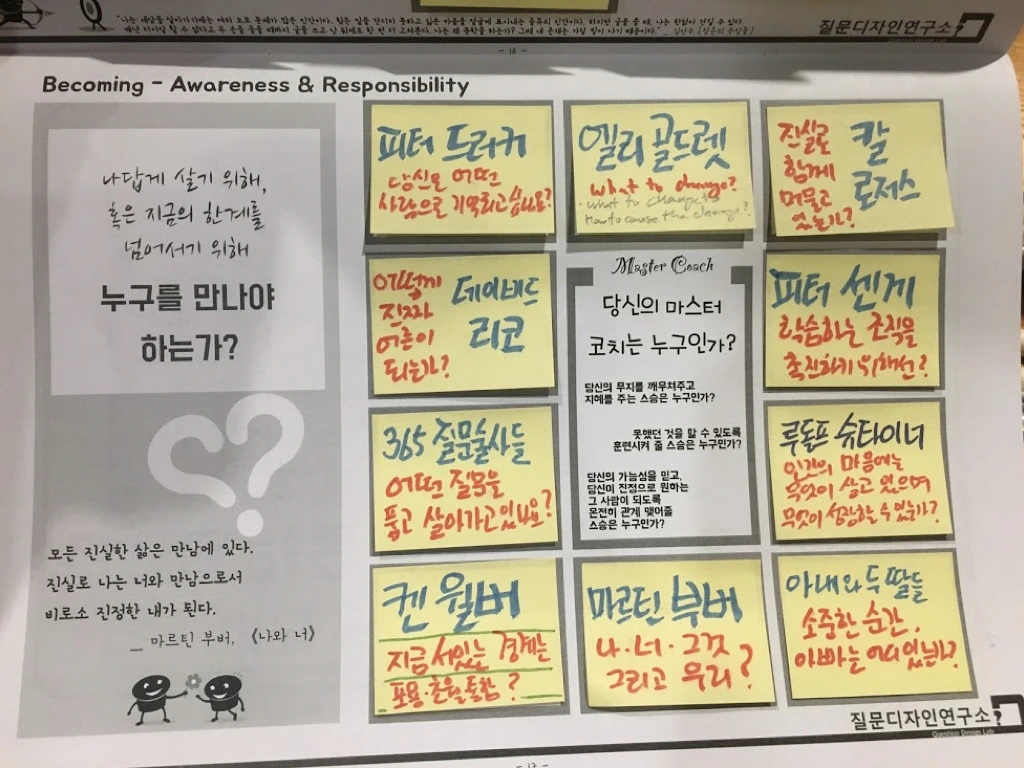 "나는 세상을 살아가기에는 여러 모로 문제가 많은 인간이다. 힘든 일을 견디지 못하고 싫은 마음을 얼굴에 표시내는 종류의 인간이다. 하지만 글을 쓸 때, 나는 한없이 견딜 수 있다.
질문디자인연구소
Question Design Lab.
- 16 -
Becoming - Awareness & Responsibility
나답게 살기 위해,
혹은 지금의 한계를
넘어서기 위해
누구를 만나야
하는가?
모든 진실한 삶은 만남에 있다.
진실로 나는 너와 만남으로서
비로소 진정한 내가 된다.
_ 마르틴 부버, 《나와 너》
피터 드러커
당신은 어떤
사람으로 기억되고 싶나요?
엘리 골드렛
what to change?
what to change to
How to cause the change?
진실로
함께
머물고
있는가?
칼
로저스
어떻게
진짜
어른이
되는가?
데이비드
리코
Master Coach
당신의 마스터
코치는 누구인가?
당신의 무지를 깨우쳐주고
지혜를 주는 스승은 누구인가?
못했던 것을 할 수 있도록
훈련시켜 줄 스승은 누구인가?
당신의 가능성을 믿고,
당신이 진정으로 원하는
그 사람이 되도록
온전히 관계 맺어줄
스승은 누구인가?
피터 센게
학습하는 조직을
촉진하기 위해선?
365 질문술사들
어떤 질문을
품고 살아가고 있나요?
루돌프 슈타이너
인간의 마음에는
무엇이 살고 있으며
무엇이 성장할 수 있는가?
켄 윌버
지금 서있는 경계는
포용·초월·통합?
마르틴 부버
나·너·그것
그리고 우리?
아내와 두 딸들
소중한 순간,
아빠는 어디 있는가?
질문디자인연구소
Question Design Lab.
- 17 -